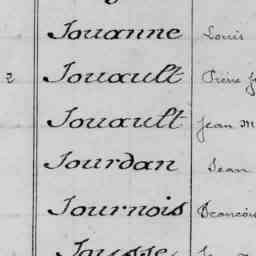 Jouanne Louis
2 Jouault Pierre
Jouault Jean M
Jourdan Jean
Journois François
Jousse